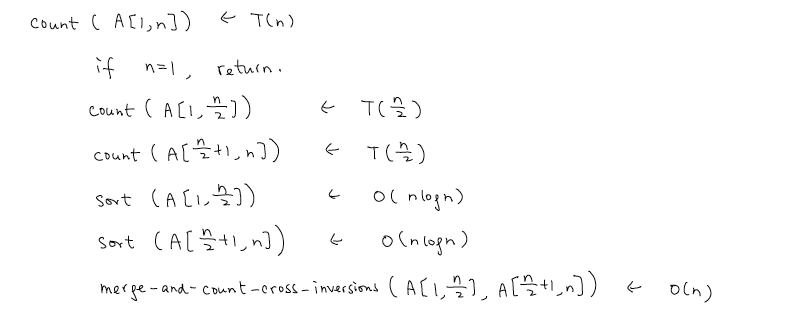 count ( A[1,n]) ← T(n)
if n=1, return.
count ( A[1, n/2]) ← T(n/2)
count ( A[n/2+1, n]) ← T(n/2)
sort (A[1, n/2]) ← O( nlogn)
sort (A[n/2+1, n]) ← O(nlogn)
merge-and-count-cross-inversions ( A[1, n/2], A[n/2+1, n]) ← O(n)